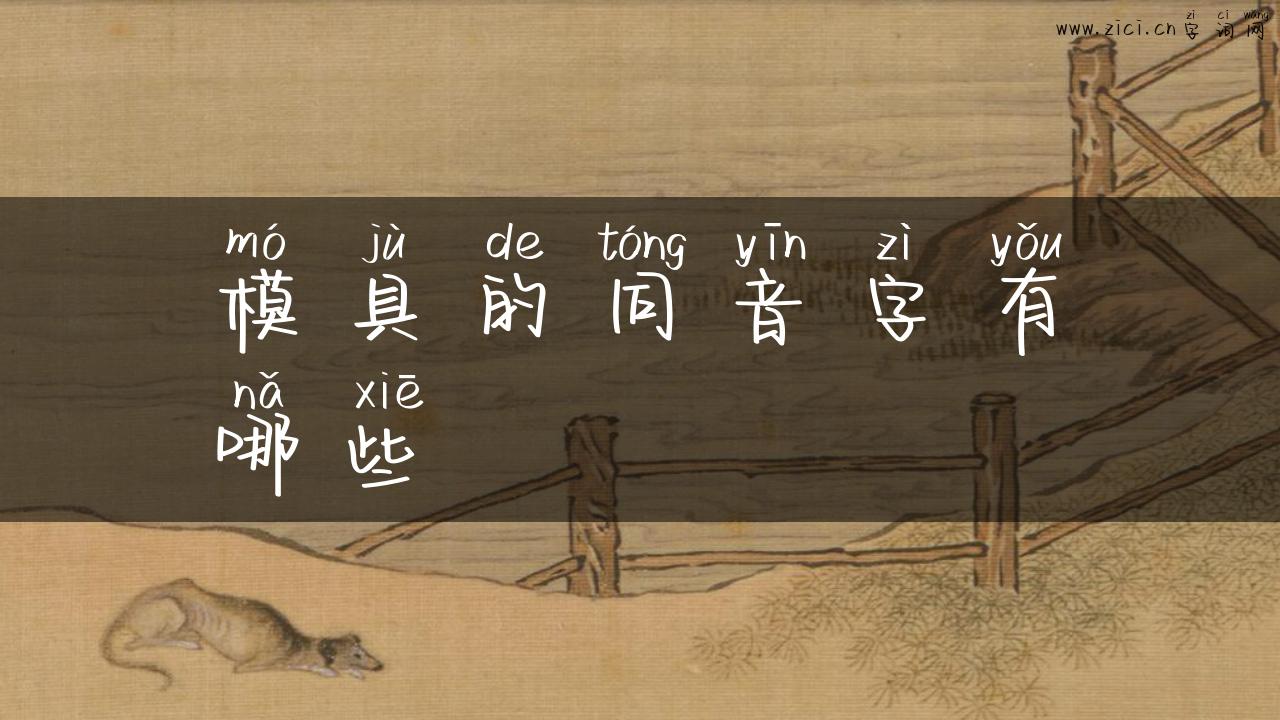 zì cí wǎng
www.zici.cn字词网
mó jù de tóng yīn zì yǒu
模具的同音字有
nǎ xiē
哪些